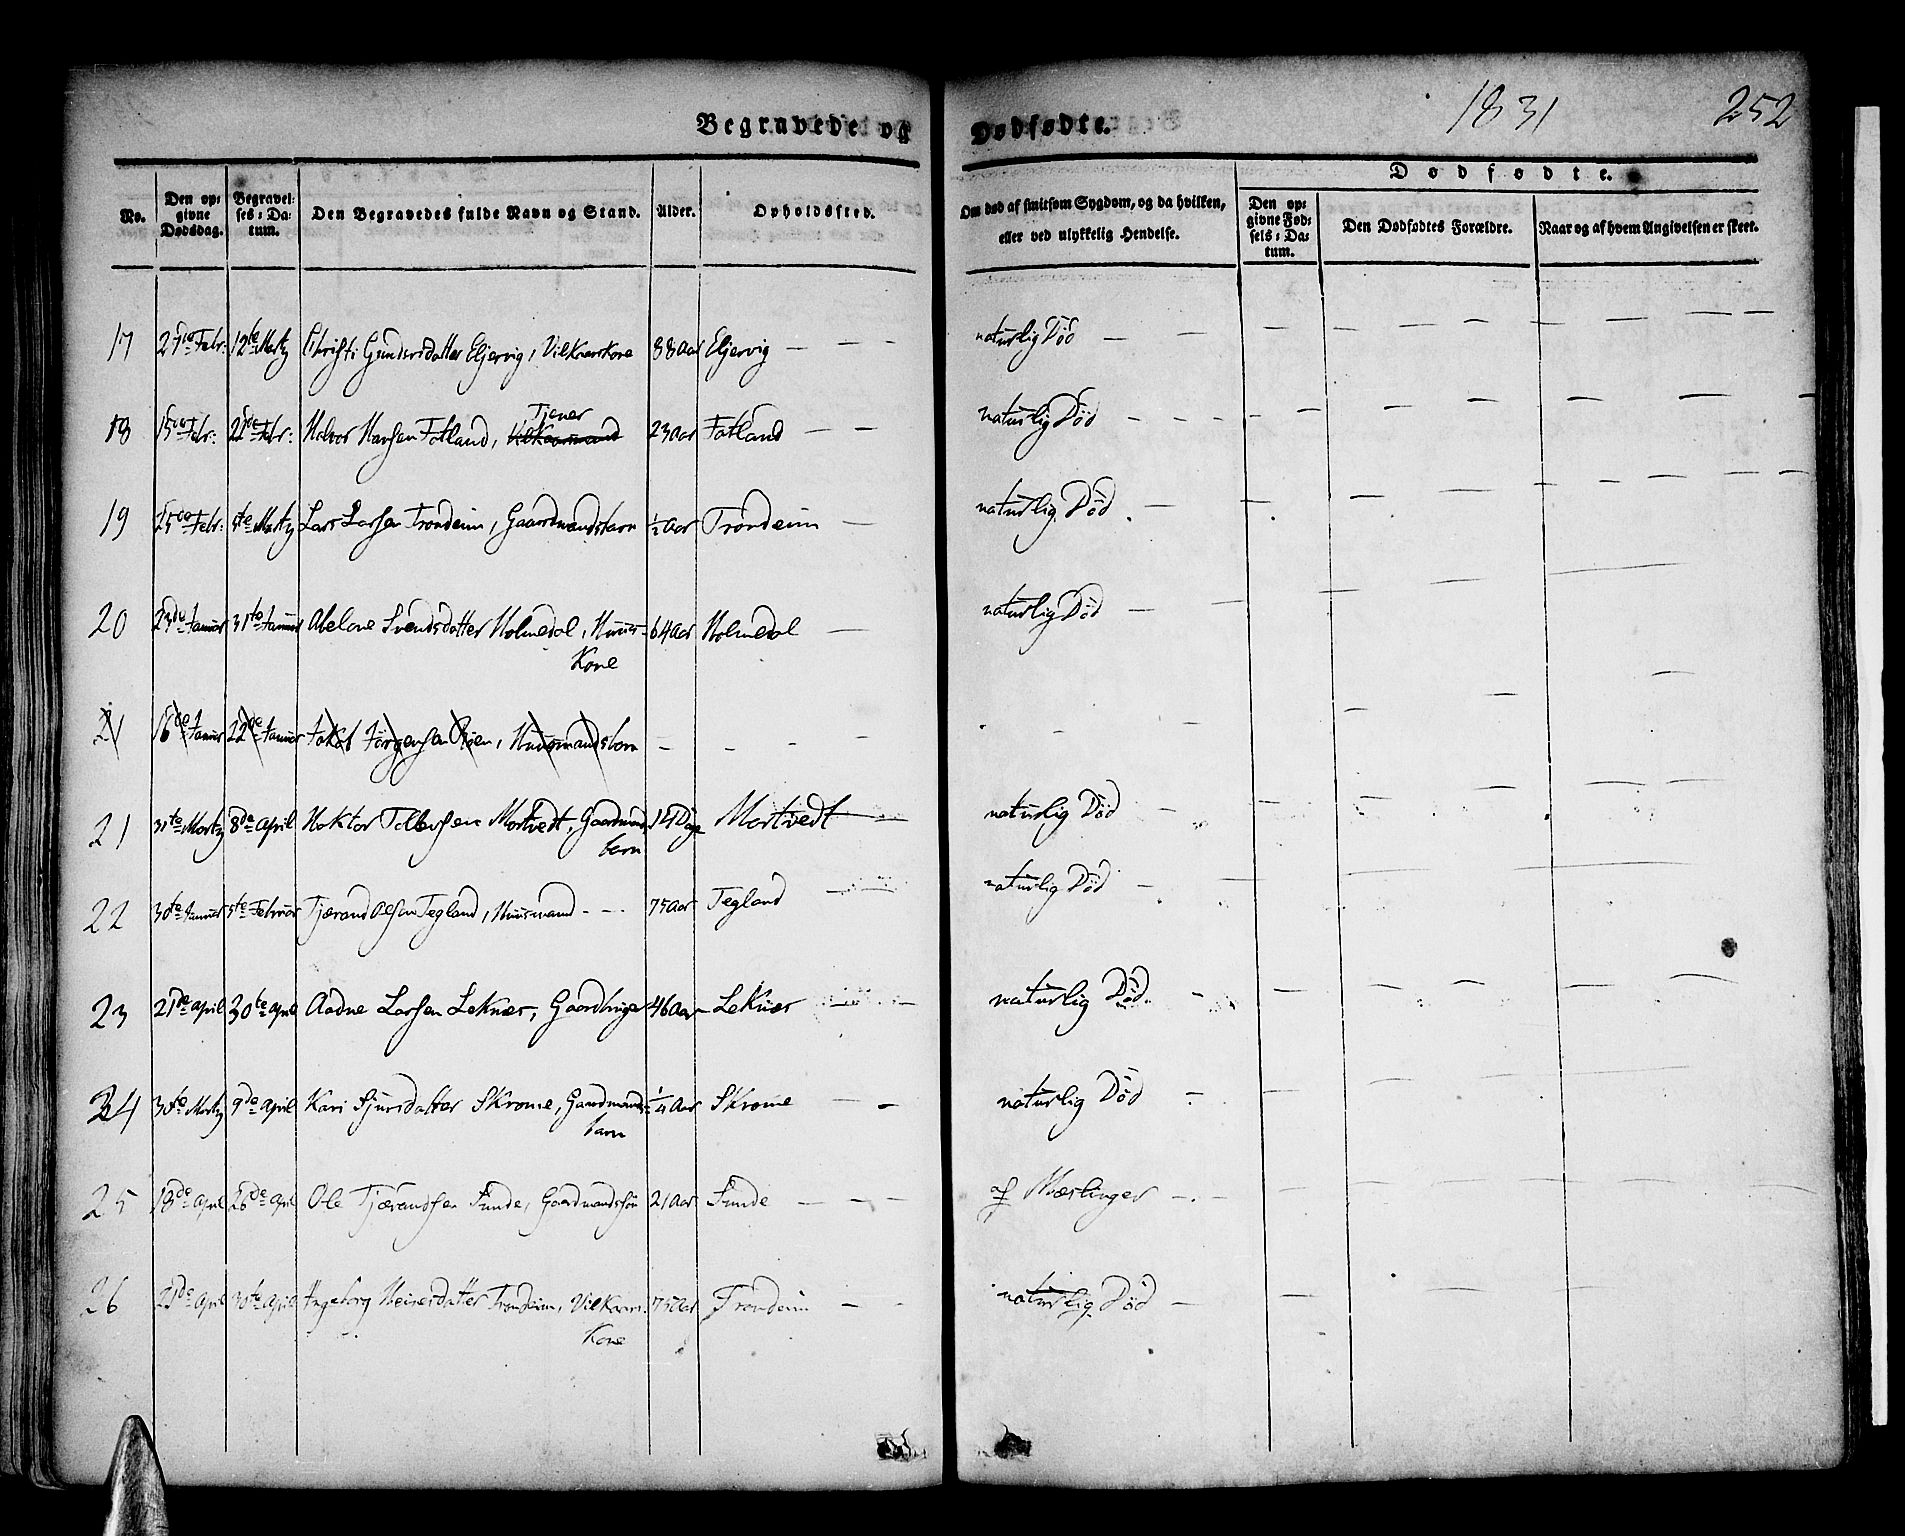 Begravede og Dødfødte.
1831
252
No. | Den opgivne Dødsdag. | Begravelses-Datum. | Den Begravedes fulde Navn og Stand. | Alder. | Opholdssted. | Om død af smitsom Sygdom, og da hvilken, eller ved ulykkelig Hendelse. | Dødfødte. | Den opgivne Fødsels-Datum. | Den Dødfødtes Forældre. | Naar og af hvem Angivelsen er skeet.
17 | 27de Febr: | 12te Martz | Christi Gundersdatter Eljervig, Vilkaarskone | 88 Aar | Eljervig | naturlig Död
18 | 15de Febr: | 22de Febr: | Halvor Hansen Fatland, Tjener Vilkaarsmand | 23 Aar | Fatland | naturlig Död
19 | 25de Febr. | 5te Martz | Lars Larsen Trondeim, Gaardmandsbarn | 1/2 Aar | Trondeim | naturlig Död
20 | 23de Januar | 31te Januar | Abelone Svendsdatter Holmedal, Huus- | 64 Aar | Holmedal | naturlig Död
Kone
21 | 16de Januar | 22de Januar | Jakob Jörgensen Öien, Huusmandsbarn
21 | 31te Martz | 8de April | Haktor Tolbersen Mortvedt, Gaardmand | 14 Dage | Mortvedt | naturlig Död
barn
22 | 30te Januar | 5te Februar | Tjærand Olsen Tegland, Huusmand | 75 Aar | Tegland | naturlig Död
23 | 21de April | 30te April | Aadne Larsen Leknæs, Gaardbruger | 46 Aar | Leknæs | naturlig Död.
24 | 30te Martz | 9de April | Kari Sjursdatter Skrome, Gaardmands- | 1/4 Aar | Skrome | naturlig Död
barn
25 | 18de April | 26de April | Ole Tjærandsen Sunde, Gaardmandssön | 21 Aar | Sunde | af Mæslinger
26 | 21de April | 30te April | Ingeborg Heinesdatter Trondeim, Vilkaars | 75 Aar | Trondeim | naturlig Död
Kone